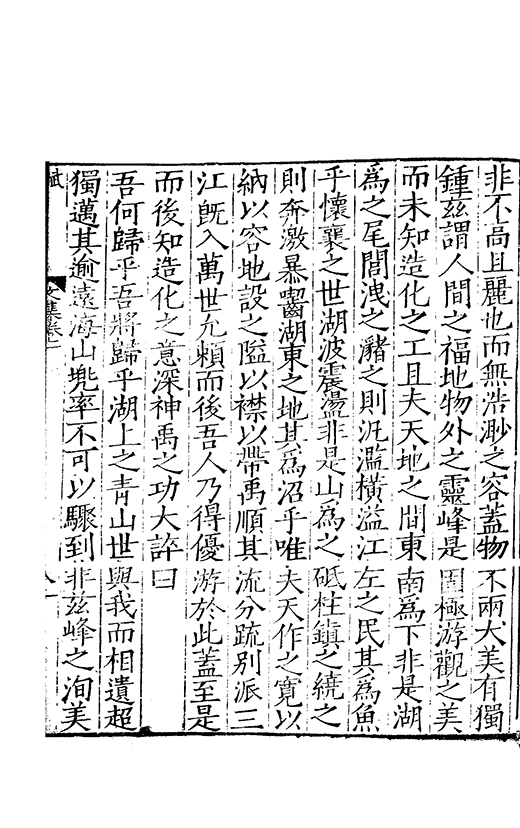 非不高且麗也而無浩渺之容蓋物不兩大美有獨
鍾茲謂人間之福地物外之靈峰是固極游觀之美
而未知造化之工且夫天地之間東南為下非是湖
為之尾閭洩之瀦之則汎濫橫溢江左之民其為魚
乎懷襄之世湖波震盪非是山為之砥柱鎮之繞之
則奔激暴齧湖東之地其為沼乎唯夫天作之寬以
納以容地設之隘以襟以帶禹順其流分疏別派三
江既入萬世允賴而後吾人乃得優游於此蓋至是
而後知造化之意深神禹之功大誶曰
吾何歸乎吾將歸乎湖上之青山世與我而相遺超
獨邁其逾遠海山兜率不可以驟到非茲峰之洵美
賦
文集卷一